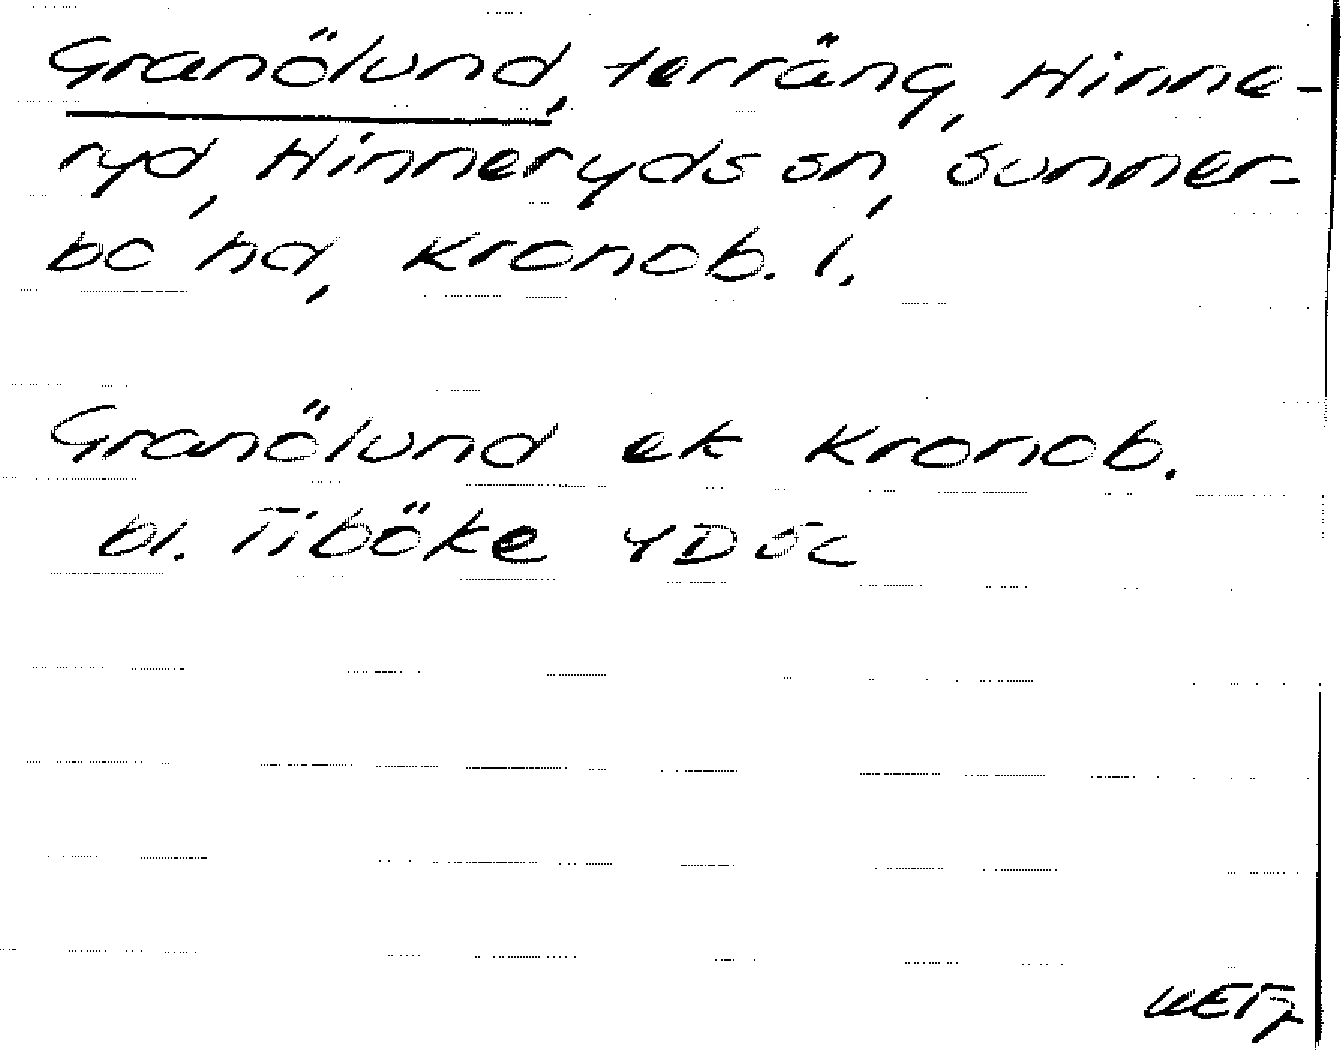 Granölund, terräng, Hinne-
ryd, Hinneryds sn, Sunner-
bo hd, Kronob. l.
Granölund ek Kronob.
bl. Tiböke 4D5c